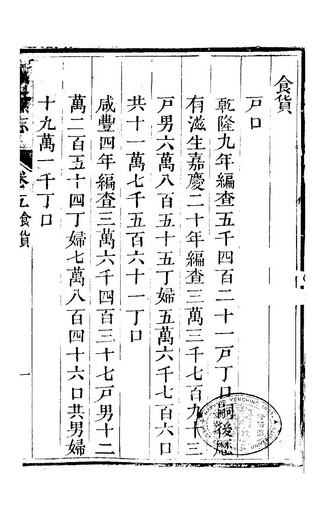 食貨
戸口
乾隆九年編查五千四百二十一戸丁口嗣後歷
有滋生嘉慶二十年編查三萬三千七百九十三
戸男六萬八百五十五丁婦五萬六千七百六口
共十一萬七千五百六十一丁口
咸豐四年編查三萬六千四百三十七戸男十二
萬二百五十四丁婦七萬八百四十六口共男婦
十九萬一千丁口
志 卷五食貨 一